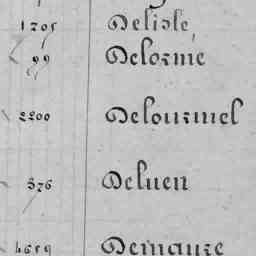 1205 Delisle,
99 Delorme
2200 Delourmel
376 Deluen
4659 Demauze